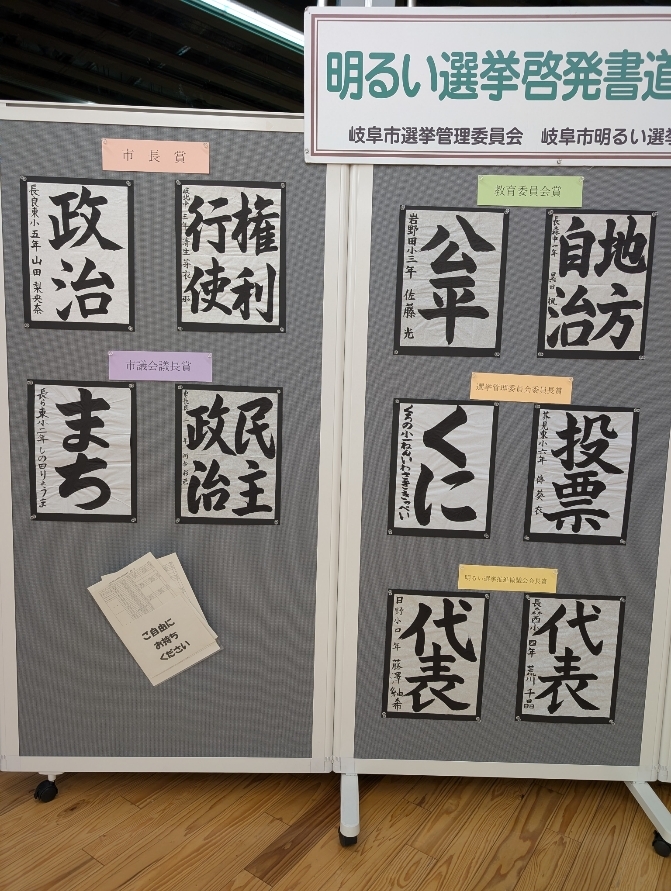 明るい選挙啓発書道
岐阜市選挙管理委員会 岐阜市明るい選挙
市長賞
政治
長良東小五年 山田 梨央奈
権利
行使
市議会議長賞
まち
民主
政治
ご自由に
お持ち
ください
教育委員会賞
公平
岩野田小三年 佐藤 光
地方
自治
選挙管理委員会委員長賞
くに
投票
芥見東小六年
明るい選挙推進協議会会長賞
代表
日野小四年
代表
長森西小四年 荒川 千晶